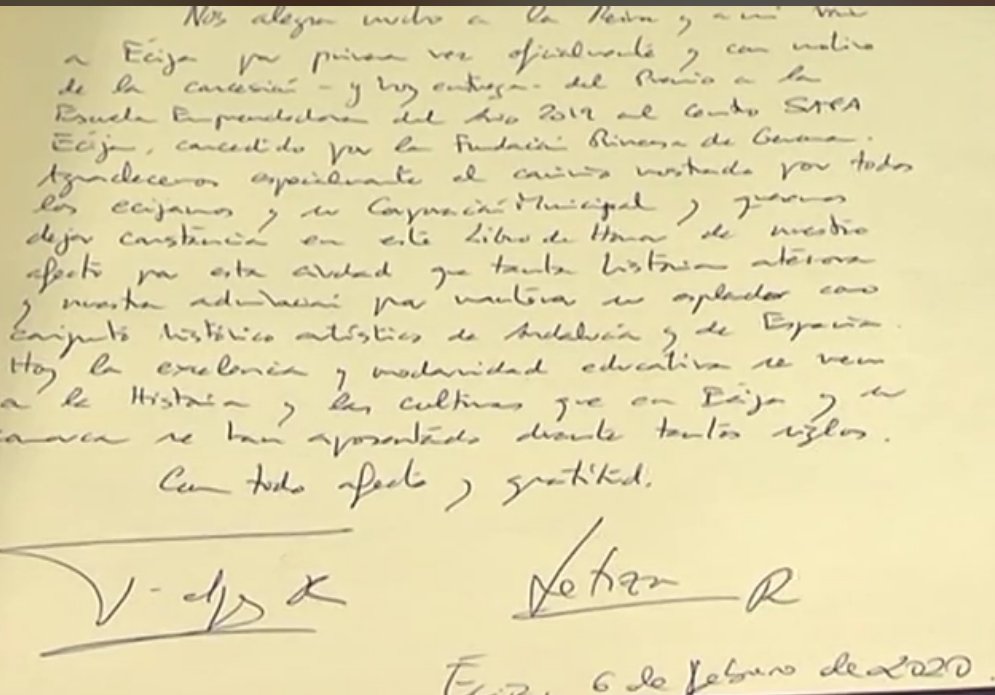 Nos alegra mucho a la Reina y a mí venir
a Écija por primera vez oficialmente y con motivo
de la concesión - y hoy entrega - del Premio a la
Escuela Emprendedora del Año 2019 al Centro SAFA
Écija, concedido por la Fundación Princesa de Gerona.
Agradecemos especialmente el cariño mostrado por todos
los ecijanos y su Corporación Municipal y queremos
dejar constancia en este Libro de Honor de nuestro
afecto por esta ciudad que tanta historia atesora
y nuestra admiración por mantener su esplendor como
conjunto histórico artístico de Andalucía y de España.
Hoy la excelencia y modernidad educativa se unen
a la Historia y las culturas que en Écija y su
comarca se han aposentado durante tantos siglos.
Con todo afecto y gratitud.
Letizia R
Écija, 6 de febrero de 2020